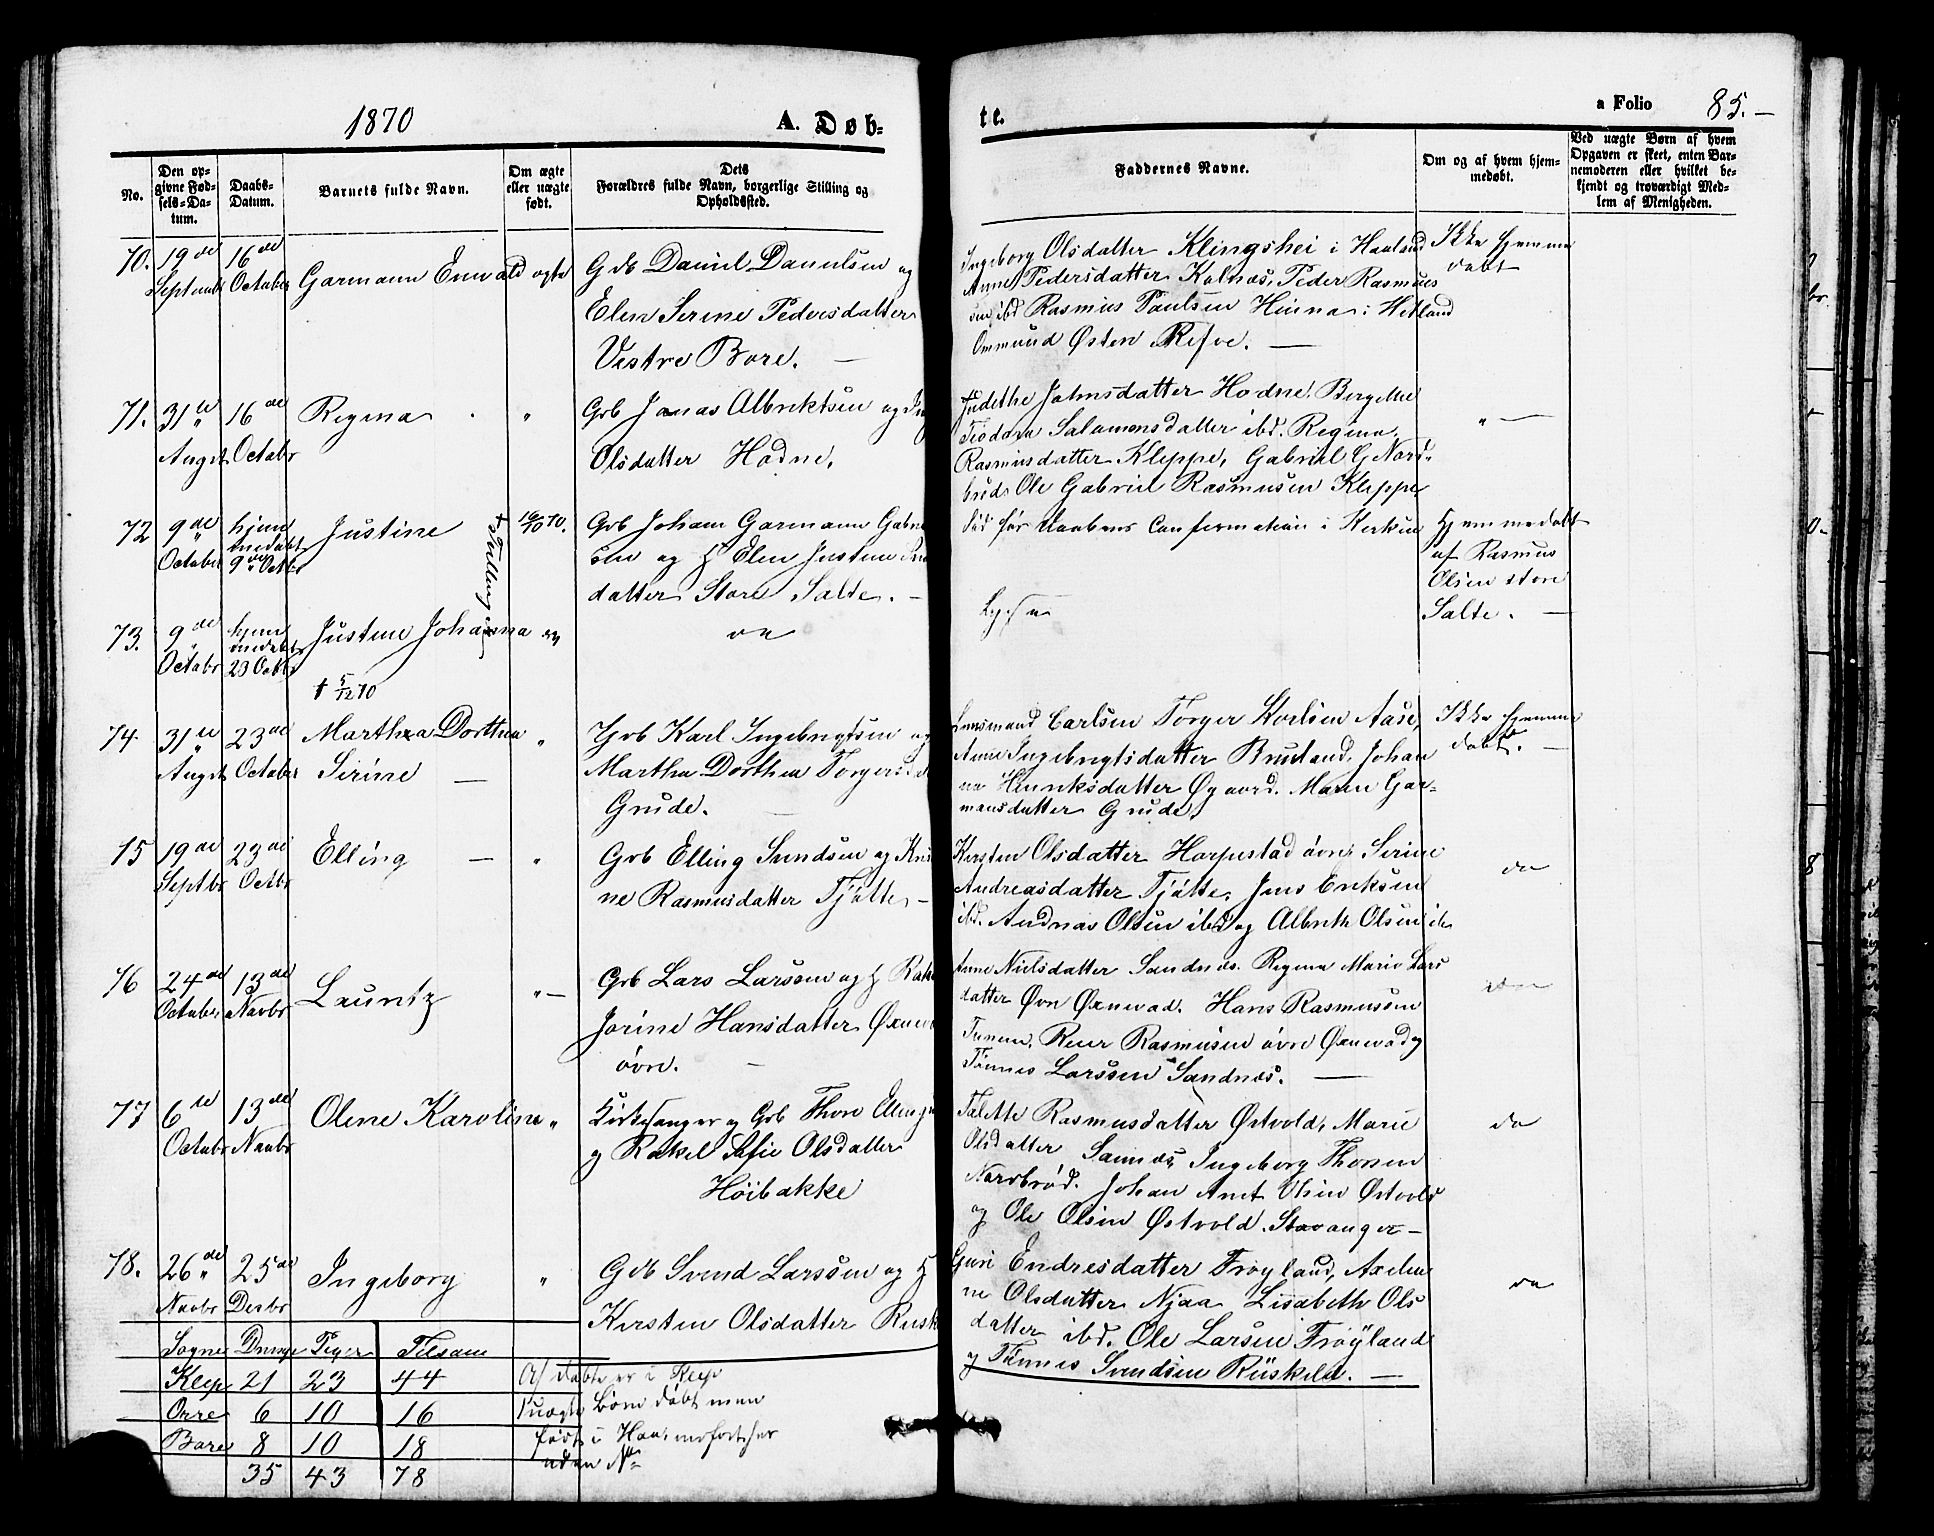 1870
A. Døb-
te.
a Folio 85.-
No.
Den op-
givne Fød-
sels-Da-
tum.
Daabs-
Datum.
Barnets fulde Navn.
Om ægte
eller uægte
født.
Dets
Forældres fulde Navn, borgerlige Stilling og
Opholdssted.
Faddernes Navne.
Om og af hvem hjem-
medøbt.
Ved uægte Børn af hvem
Opgaven er skeet, enten Bar-
nemoderen eller hvilket be-
kjendt og troværdigt Med-
lem af Menigheden.
70. 19de 16de
Septembr October Garmann Enwald ægte
Gdb Daniel Danielsen og
Elen Serine Pedersdatter
Vestre Bore. —
Ingeborg Olsdatter Klingshei i Haaland
Anne Pedersdatter Kalnæs, Peder Rasmus
sen ibd Rasmus Paulsen Hinna i Hetland
Ommund Østen Refve. —
Ikke hjemme
døbt
71. 31te 16de Regina "
August Octobr
Grb Jonas Albrektsen og
Olsdatter Hodne.
Judethe Johnsdatter Hodne,
Teodora Salamonsdatter ibd. Regina
Rasmusdatter Kleppe, Gabriel G Nord-
Ole Gabriel Rasmusen Kleppe
" —
72 9de hjem Justine 16/10 70.
October medøbt
9de Octbr
Grb Johan Garmann Gabri
sen og H Elen Justine
datter Store Salte. —
død før Daabens Confirmation i Kirken
Hjemmedøbt
af Rasmus
Olsen store
Salte. —
73. 9de hjem Justine Johanna
Octobr medøbt
23 Octbr
† 5/12 70
do
74. 31te 23de Martha Dorthea "
August October Serine —
Grb Karl Ingebrigtsen og
Martha Dorthea Torgersd
Grude.
Carlsen Torger Korlsen Aase,
Anne Ingebrigtsdatter Bruland, Johan
ne Henriksdatter Øgaard. Maren Gar-
mansdatter Grude.
Ikke hjemme
døbt. —
75 19de 23de Elling — "
Septbr Octbr
Grb Elling Svendsen og Kris
ne Rasmusdatter Tjøtte, —
Kirsten Olsdatter Harpestad øvre Serine
Andreasdatter Tjøtte, Jens Eriksen
ibd. Andreas Olsen ibd og Albreth Olsen ibd
do
76 24de 13de Lauritz " —
October Novbr
Grb Lars Larssen og H Rak
Jorine Hansdatter Øxne
øvre. —
Anne Nielsdatter Sandnes. Regina Marie Lars
datter Øvre Øxnevad. Hans Rasmussen
Reier Rasmusen øvre Øxnevad og
Tønnes Larssen Sandnæs. —
do
77 6te 13de Olene Karoline "
Octobr Novbr
Kirkesanger og Grb Thore Elling
og Rakel Sofie Olsdatter
Høibakke
Talette Rasmusdatter Østvold, Marie
Olsdatter Sannæs, Ingeborg Thorsen
Nordbrød. Johan Arnt Olsen Østvold
og Ole Olsen Østvold Stavanger —
do
78. 26de 25de Ingeborg "
Novbr Decbr
Gdb Svend Larssen og H
Kirsten Olsdatter Rusk
Guri Endresdatter Frøyland, Axelin
ne Olsdatter Njaa Lisabeth Ols
datter ibd. Ole Larsen Frøyland
og Tønnes Svendsen Ruskela. —
do
Sogne Drenge Piger Tilsam
Klep 21 23 44
Orre 6 10 16
Bore 8 10 18
35 43 78
Af døbte er i Klep
1 uægte Børn døbt men
født i
uden No